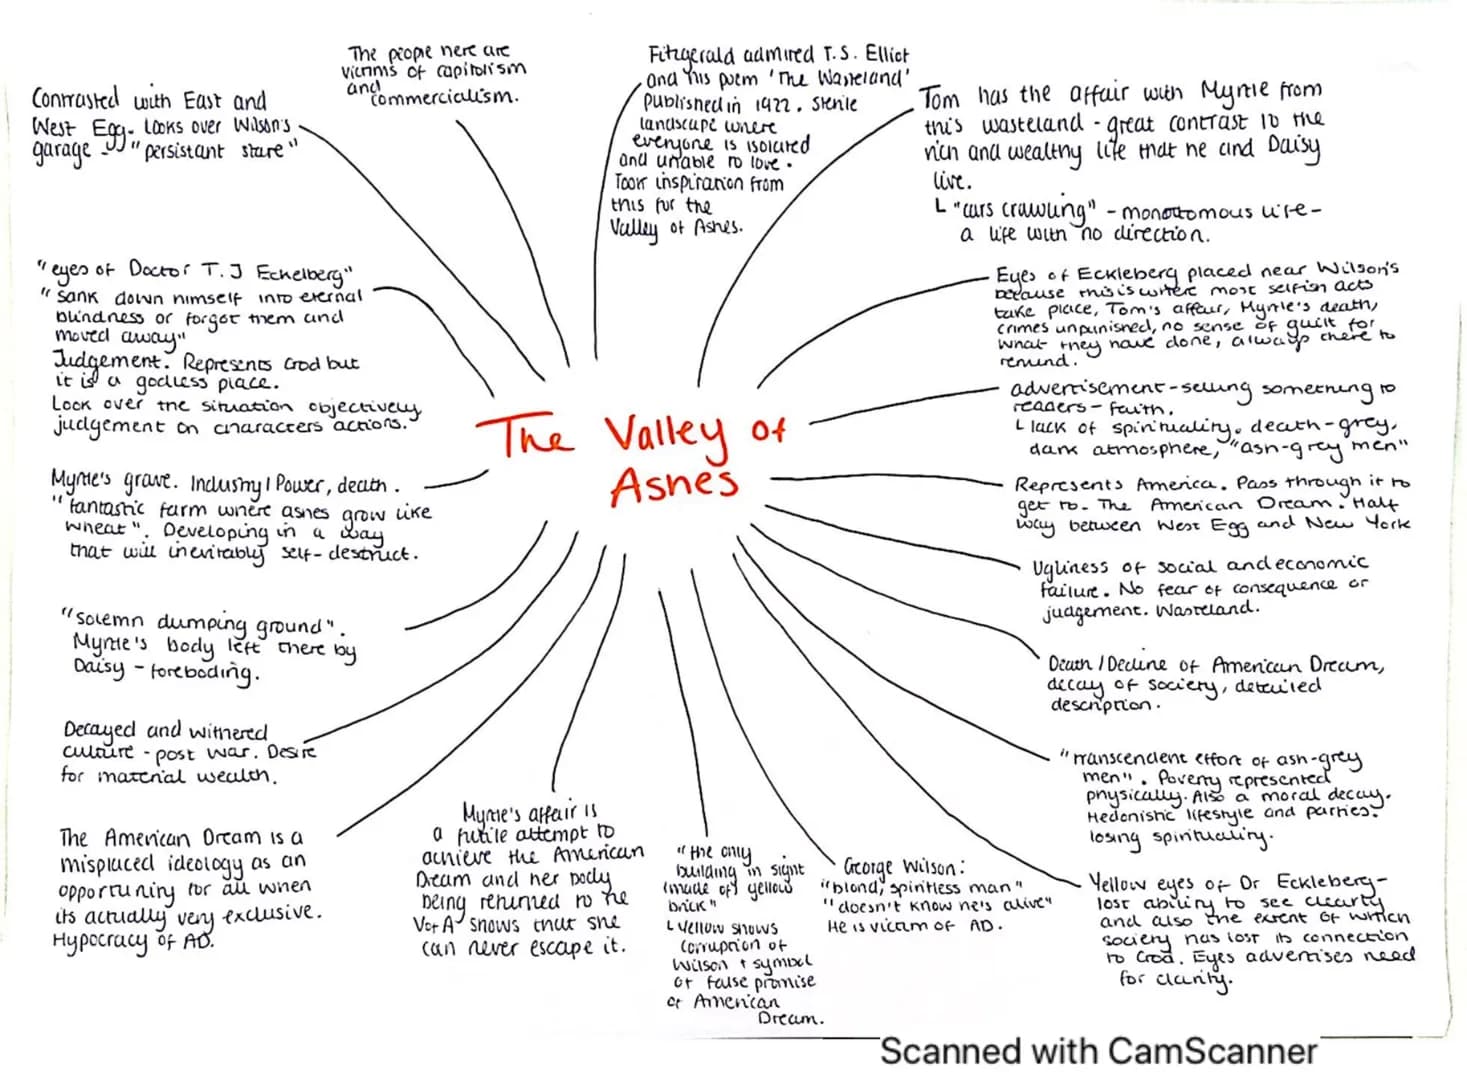 The people here are
victims of capitolism
and
commercialism.
Fitzgerald admired T.S. Elliot
and his poem 'The Wasteland'
published in 1922. Sterile
landscape where
everyone is isolated
and unable to love.
Took inspiration from
this for the
Valley of Ashes.
Contrasted with East and
West Egg. Looks over Wilson's
garage - "persistant stare"
Tom has the affair with Myrtle from
this wasteland - great contrast to the
rich and wealthy life that he and Daisy
live.
L "cars crawling" - monotomous life -
a life with no direction.
"eyes of Doctor T.J Eckelberg"
"sank down himself into eternal
blindness or forgot them and
moved away"
Judgement. Represents God but
it is a godless place.
Look over the situation objectively
judgement on characters actions.
Eyes of Eckleberg placed near Wilson's
because this is where most selfish acts
take place, Tom's affair, Myrtle's death,
crimes unpunished, no sense of guilt for
what they have done, always there to
remind.
advertisement - selling something to
readers - faith.
L lack of spirituality, death - grey,
dark atmosphere, "ash-grey men"
The Valley of
Ashes
Myrtle's grave. Industry / Power, death.
"fantastic farm where ashes grow like
wheat". Developing in a way
that will inevitably self-destruct.
Represents America. Pass through it to
get to. The American Dream. Half
way between West Egg and New York
Ugliness of social and economic
failure. No fear of consequence or
judgement. Wasteland.
"solemn dumping ground".
Myrtle's body left there by
Daisy - foreboding.
Death / Decline of American Dream,
decay of society, detailed
description.
Decayed and withered
culture - post war. Desire
for material wealth.
"transcendent effort of ash-grey
men". Poverty represented
physically. Also a moral decay.
Hedonistic lifestyle and parties.
losing spirituality.
The American Dream is a
misplaced ideology as an
opportunity for all when
its actually very exclusive.
Hypocracy of AD.
Myrtle's affair is
a futile attempt to
achieve the American
Dream and her body
being returned to the
V of A shows that she
can never escape it.
"the only
building in sight
(made of) yellow
brick"
L yellow shows
corruption of
Wilson + symbol
of false promise
of American
Dream.
George Wilson:
"blond, spiritless man"
"doesn't know he's alive"
He is victim of AD.
Yellow eyes of Dr Eckleberg -
lost ability to see clearly
and also the extent of which
society has lost its connection
to God. Eyes advertises need
for clarity.
Scanned with CamScanner